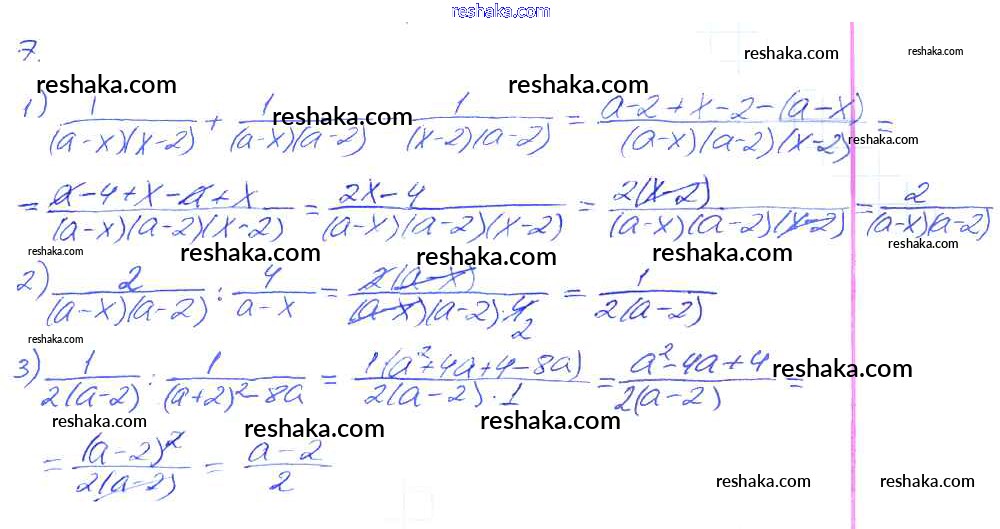 reshaka.com
7.
reshaka.com reshaka.com reshaka.com reshaka.com
1) 1/((a-x)(x-2)) + 1/((a-x)(a-2)) 1/((x-2)(a-2)) = (a-2+x-2-(a-x))/((a-x)(a-2)(x-2)) =
reshaka.com reshaka.com reshaka.com
= (a-4+x-a+x)/((a-x)(a-2)(x-2)) = (2x-4)/((a-x)(a-2)(x-2)) = 2(x-2)/((a-x)(a-2)(x-2)) = 2/((a-x)(a-2))
reshaka.com reshaka.com reshaka.com reshaka.com reshaka.com
2) 2/((a-x)(a-2)) : 4/(a-x) = 2(a-x)/((a-x)(a-2)·4 2) = 1/(2(a-2))
reshaka.com
3) 1/(2(a-2)) : 1/((a+2)²-8a) = 1(a²+4a+4-8a)/(2(a-2)·1) = (a²-4a+4)/(2(a-2)) =
reshaka.com
reshaka.com reshaka.com reshaka.com reshaka.com
= (a-2)²/(2(a-2)) = (a-2)/2
reshaka.com reshaka.com